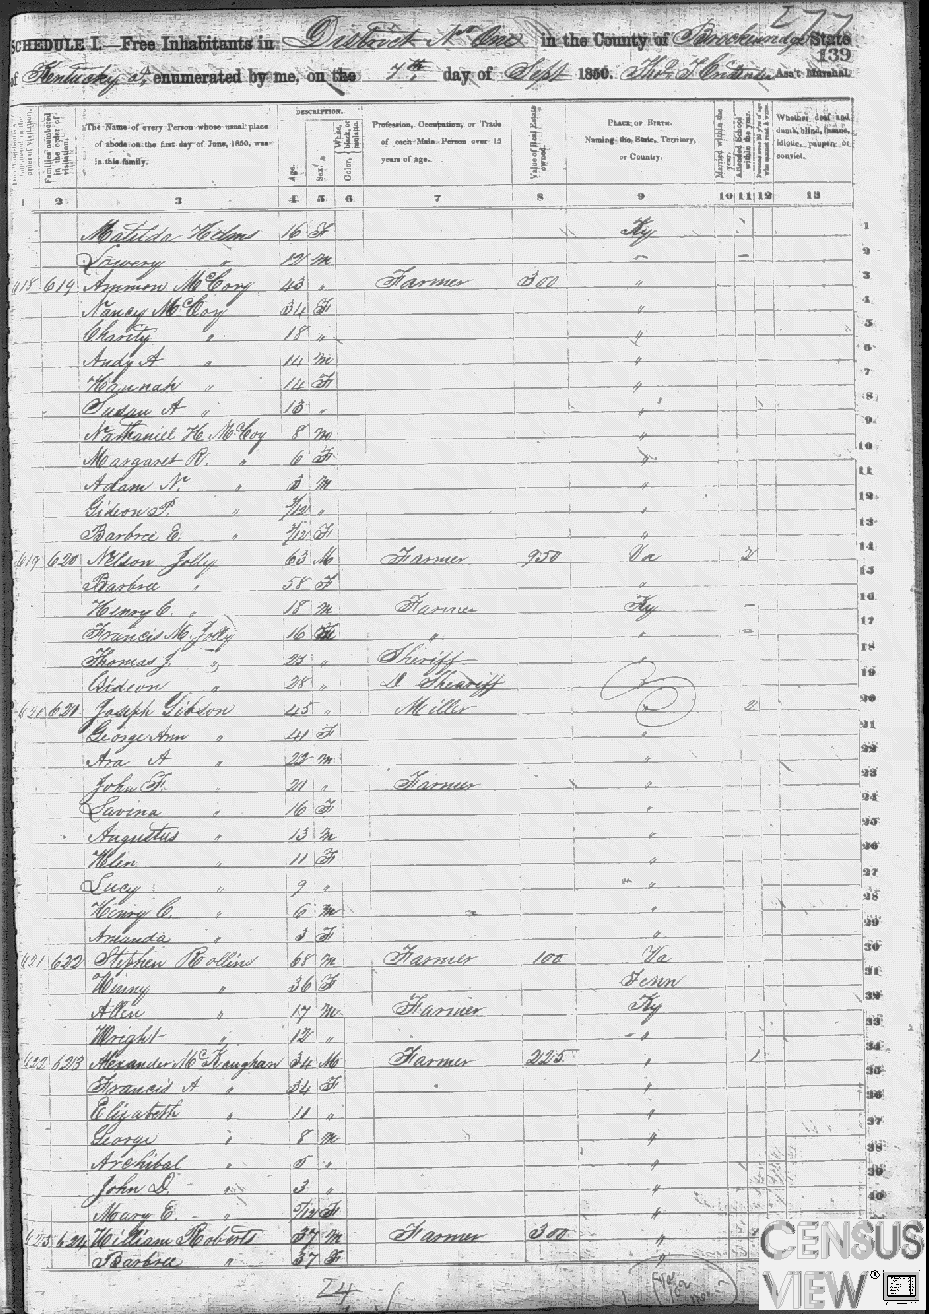 277
SCHEDULE I.—Free Inhabitants in District No One in the County of Breckinridge State
139
of Kentucky enumerated by me, on the 7th day of Sept 1850. Ass't Marshal.
Families numbered in the order of visitation.
The Name of every Person whose usual place of abode on the first day of June, 1850, was in this family.
DESCRIPTION.
Age.
Sex.
Color, White, black, or mulatto.
Profession, Occupation, or Trade of each Male Person over 15 years of age.
Value of Real Estate owned.
Place of Birth. Naming the State, Territory, or Country.
Married within the year.
Attended School within the year.
Whether deaf and dumb, blind, insane, idiotic, pauper or convict.
1 2 3 4 5 6 7 8 9 10 11 12 13
Matilda Holms 16 F Ky 1
" 12 m 2
618 619 Ammon McCoy 43 " Farmer 300 " 3
Nancy McCoy 34 F " 4
Charity " 18 " " 5
Andy A " 14 m " 6
Hannah " 14 F " 7
Susan A " 13 " " 8
Nathaniel H McCoy 8 m " 9
Margaret R. " 6 F " 10
Adam N. " m " 11
Gideon P. " /12 " " 12
Barbree E. " /12 F " 13
619 620 Nelson Jolly 63 M Farmer 950 Va 2 14
Barbree " 58 F " 15
Henry C " 18 m Farmer Ky 16
Francis M Jolly 16 m " " 17
Thomas J. " 25 " Sheriff " 18
Gideon " 28 " D Sheariff " 19
621 Joseph Gibson 45 " Miller " 2 20
George Ann " 41 F " 21
Ara A " 22 m " 22
John F. " 21 " Farmer " 23
Lavina " 16 F " 24
Augustus " 13 m " 25
Helen " 11 F " 26
Lucy " 9 " " 27
Henry C. " 6 m " 28
Amanda " 3 F " 29
621 622 Stephen Rollins 68 m Farmer 100 Va 30
Winny " 36 F Tenn 31
Allen " 17 m Farmer Ky 32
Wright " 12 " " 33
622 623 Alexander McKaughan 34 M Farmer 225 " 1 34
Francis A " 34 F " 35
Elizabeth " 11 " " 36
George " 8 m " 37
Archibal " 5 " " 38
John D. " 3 " " 39
Mary E. " /12 F " 40
623 624 William Roberts 37 m Farmer 300 "
Barbree " 37 F "
24
CENSUS
VIEW®